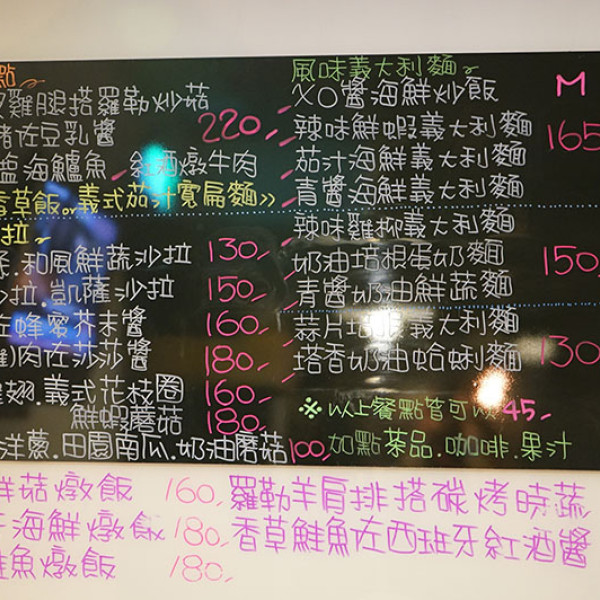 點
雞腿搭羅勒炒菇
佐豆乳醬
220
海鱸魚.紅酒燉牛肉
香草飯or義式茄汁寬扁麵》
拉
.和風鮮蔬沙拉 130
沙拉.凱薩沙拉 150
蜂蜜芥末醬 160
肉佐莎莎醬 180
翅.義式花枝圈 160
鮮蝦蘑菇 180
洋蔥.田園南瓜.奶油蘑菇 100
風味義大利麵 M
XO醬海鮮炒飯
辣味鮮蝦義大利麵 165
茄汁海鮮義大利麵
青醬海鮮義大利麵
辣味雞柳義大利麵
奶油培根蛋奶麵 150
青醬奶油鮮蔬麵
蒜片培根義大利麵
塔香奶油蛤蜊麵 130
※以上餐點皆可以45
加點茶品.咖啡.果汁
菇燉飯 160
海鮮燉飯 180
魚燉飯 180
羅勒羊肩排搭碳烤時蔬
香草鮭魚佐西班牙紅酒醬